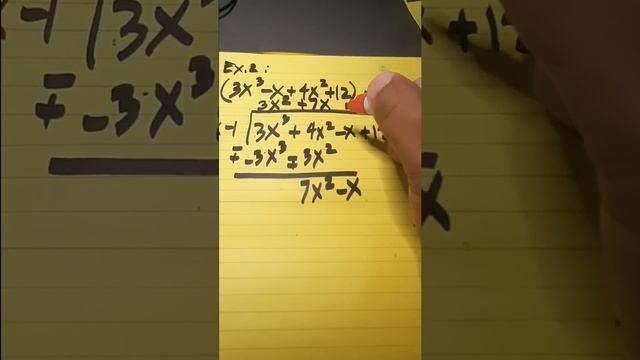 Ex. 2 :
(3x³-x+4x²+12)
3x² +7x
-1 | 3x³ + 4x² - x + 1
∓ -3x³ ∓ 3x²
7x² - x